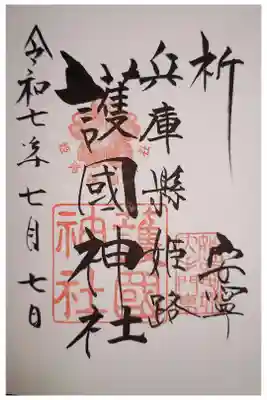 祈 安寧
兵庫縣姫路
護國神社
令和七年七月七日
護國
神社